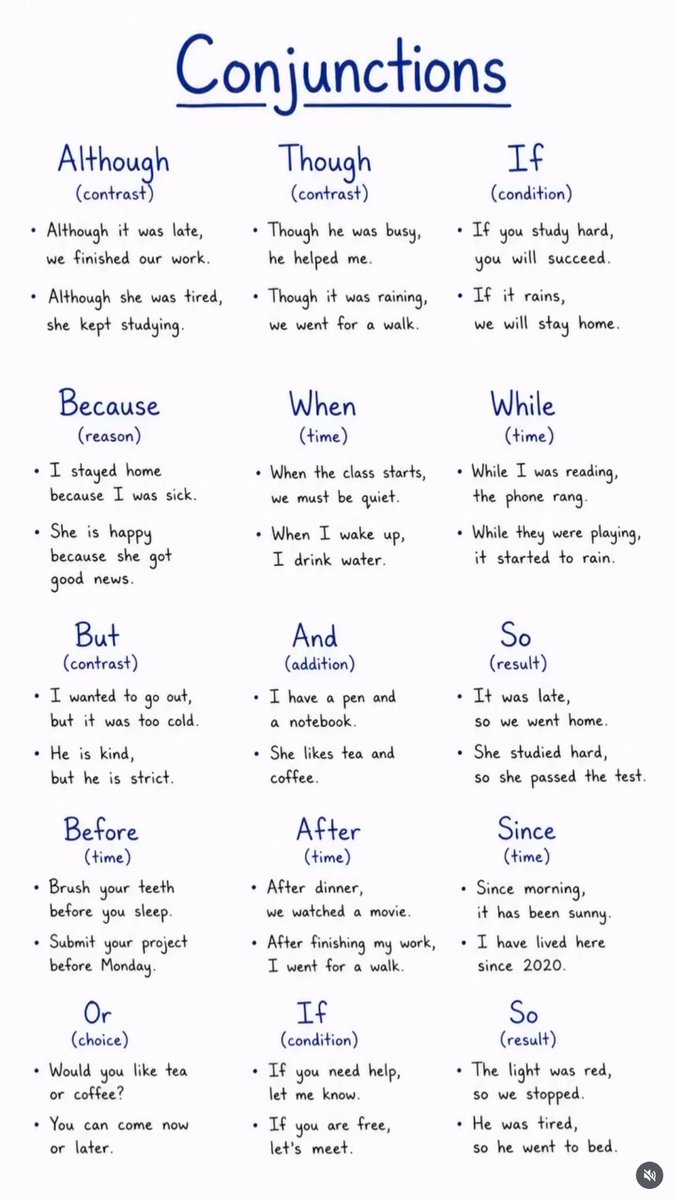 Conjunctions
Although
(contrast)
• Although it was late,
we finished our work.
• Although she was tired,
she kept studying.
Though
(contrast)
• Though he was busy,
he helped me.
• Though it was raining,
we went for a walk.
If
(condition)
• If you study hard,
you will succeed.
• If it rains,
we will stay home.
Because
(reason)
• I stayed home
because I was sick.
• She is happy
because she got
good news.
When
(time)
• When the class starts,
we must be quiet.
• When I wake up,
I drink water.
While
(time)
• While I was reading,
the phone rang.
• While they were playing,
it started to rain.
But
(contrast)
• I wanted to go out,
but it was too cold.
• He is kind,
but he is strict.
And
(addition)
• I have a pen and
a notebook.
• She likes tea and
coffee.
So
(result)
• It was late,
so we went home.
• She studied hard,
so she passed the test.
Before
(time)
• Brush your teeth
before you sleep.
• Submit your project
before Monday.
After
(time)
• After dinner,
we watched a movie.
• After finishing my work,
I went for a walk.
Since
(time)
• Since morning,
it has been sunny.
• I have lived here
since 2020.
Or
(choice)
• Would you like tea
or coffee?
• You can come now
or later.
If
(condition)
• If you need help,
let me know.
• If you are free,
let's meet.
So
(result)
• The light was red,
so we stopped.
• He was tired,
so he went to bed.